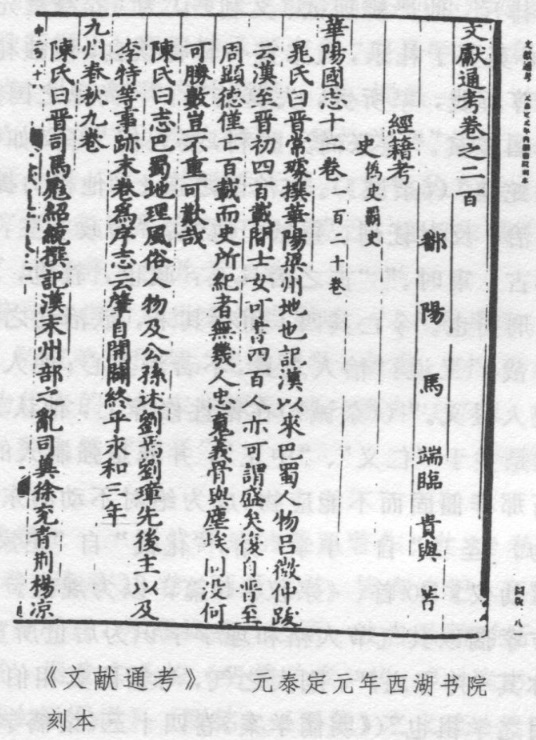 文獻通考 元泰定元年西湖書院刻本
文獻通考卷之二百
鄱陽馬端臨貴與著
經籍考
史 僞史霸史
華陽國志十二卷 一百二十卷
晁氏曰晉常璩撰華陽梁州地也記漢以來巴蜀人物呂微仲跋
云漢至晉初四百載間士女可書四百亦可謂盛矣復自晉至
周顯德僅七百載而史所紀者無幾人忠魂義骨與塵埃同没何
可勝數豈不重可歎哉
陳氏曰志巴蜀地理風俗人物及公孫述劉焉劉璋先後主以及
李特等事跡末卷爲序志云肇自開闢終乎永和三年
九州春秋九卷
陳氏曰晉司馬彪紹統撰記漢末州部之亂司冀徐兖青荆楊凉
《文献通考》 元泰定元年西湖书院
刻本